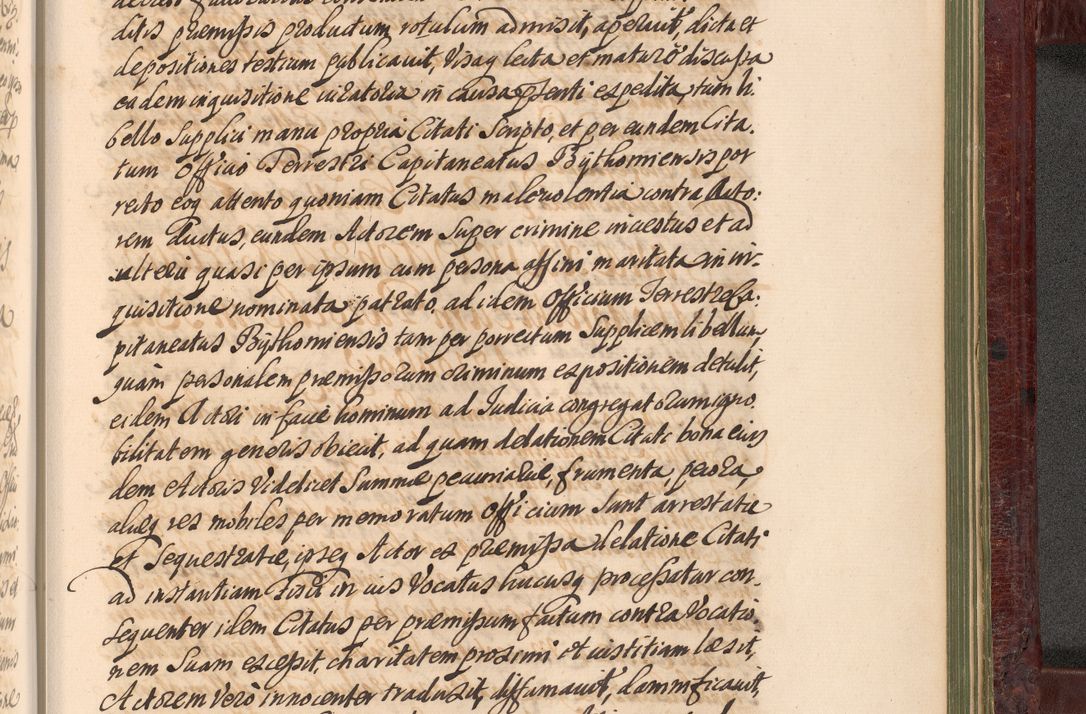 ditis præmissis productum rotulum admisit, aperuit, dicta et
depositiones testium publicavit, Visaq lecta et mature discussa
eadem inquisitione iuratoria in causa pnsenti expedita, tum li.
bello supplici manu propria Citati Scripto, et per eundem Cita.
tum Officio Terrestri Capitaneatus Bythomiensis por
recto eoq attento quoniam Citatus malevolentia contra Acto:
rem ductus, eundem Actorem super crimine incestus et ad
ulterii quasi per ipsum cum persona affini maritata in in-
quisitione nominata patrato, ad idem Officium Terrestre Ca:
pitaneatus Bythomiensis tam per porrectum Supplicem libellum,
quam personalem præmissorum criminum expositionem detulit,
eidem Actori in facie hominum ad Judicia congregatorum igno.
bilitatem generis obiecit, ad quam delationem Citati bona eius
dem Actoris Videlicet Summæ pecuniariæ, frumenta, pecora,
aliæq res mobiles per memoratum Officium sunt arrestatæ
et sequestratæ, ipseq Actor ex præmissa delatione Citati
ad instantiam Fisci in ius Vocatus hucusq processatur con-
sequenter idem Citatus per præmissum factum contra Vocatio,
nem suam excessit, charitatem proximi et iustitiam læsit,
Actorem Vero innocenter traduxit, diffamavit, damnificavit,